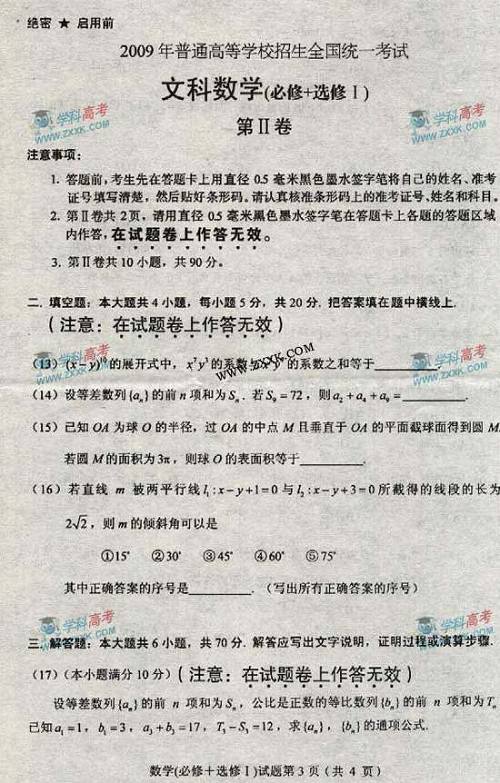 绝密 ★ 启用前
2009 年普通高等学校招生全国统一考试
文科数学(必修+选修Ⅰ)
第Ⅱ卷
注意事项：
1. 答题前，考生先在答题卡上用直径 0.5 毫米黑色墨水签字笔将自己的姓名、准考
证号填写清楚，然后贴好条形码。请认真核准条形码上的准考证号、姓名和科目。
2. 第Ⅱ卷共 2页，请用直径 0.5 毫米黑色墨水签字笔在答题卡上各题的答题区域
内作答，在试题卷上作答无效。
3. 第Ⅱ卷共 10 小题，共 90 分。
二. 填空题：本大题共 4 小题，每小题 5 分，共 20 分. 把答案填在题中横线上.
(注意：在试题卷上作答无效)
(13) (x－y)¹⁰ 的展开式中，x⁷y³ 的系数与 x³y⁷ 的系数之和等于________.
(14) 设等差数列{aₙ}的前 n 项和为 Sₙ. 若 S₉=72，则 a₂+a₄+a₉=________.
(15) 已知 OA 为球 O 的半径，过 OA 的中点 M 且垂直于 OA 的平面截球面得到圆 M.
若圆 M 的面积为 3π，则球 O 的表面积等于________.
(16) 若直线 m 被两平行线 l₁:x－y+1=0 与 l₂:x－y+3=0 所截得的线段的长为
2√2，则 m 的倾斜角可以是
①15° ②30° ③45° ④60° ⑤75°
其中正确答案的序号是________. (写出所有正确答案的序号)
三. 解答题：本大题共 6 小题，共 70 分. 解答应写出文字说明，证明过程或演算步骤.
(17) (本小题满分 10 分) (注意：在试题卷上作答无效)
设等差数列{aₙ}的前 n 项和为 Sₙ，公比是正数的等比数列{bₙ}的前 n 项和为 Tₙ
已知 a₁=1，b₁=3，a₃+b₃=17，T₃－S₃=12，求{aₙ}，{bₙ}的通项公式.
数学(必修＋选修Ⅰ)试题第 3 页 (共 4 页)
学科高考
WWW.ZXXK.COM
学科高考
WWW.ZXXK.COM
WWW.ZXXK.COM
学科高考
WWW.ZXXK.COM
学科高考
WWW.ZXXK.COM
学科高考
WWW.ZXXK.COM
学科高考
WWW.ZXXK.COM